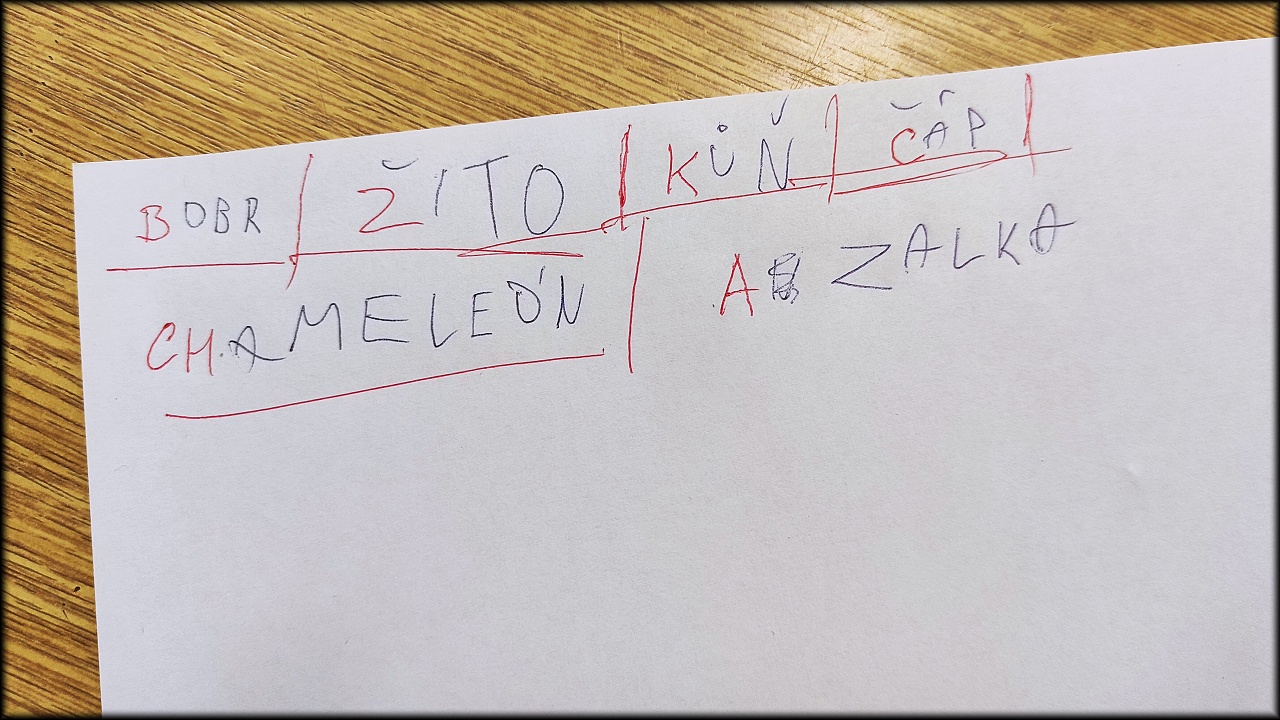 BOBR ŽITO KŮŇ ČÁP
CHAMELEÓN A ZALKA